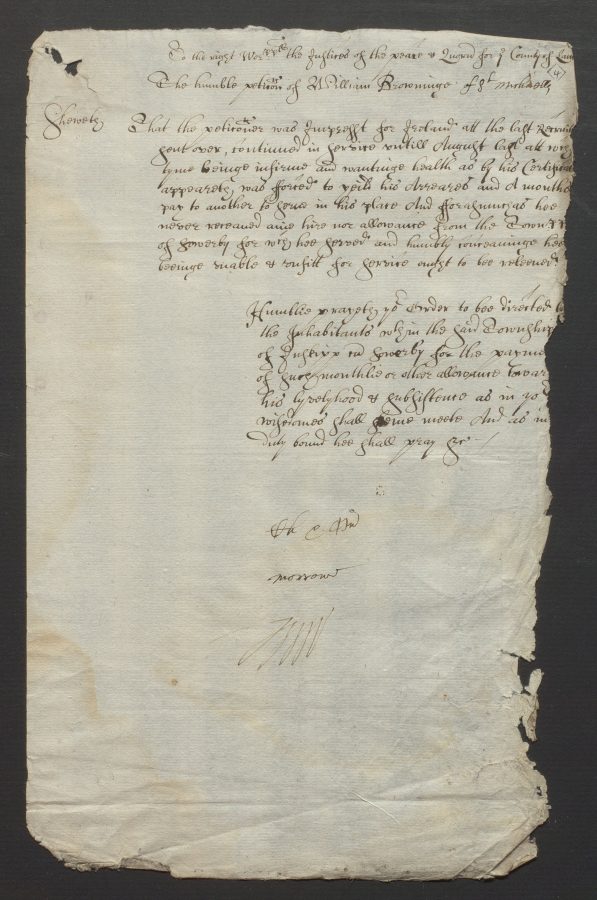 To the right Wor:pps the Justices of the peace & Quorū for ye County of Lan
The humble peticōn of William Browninge of St Michaells
Sheweth That the peticoner was Imprest for Ireland att the last Recruite
sent over, continued in service untill August last att wch
tyme beinge infirme and wantinge health as by his Certificate
appeareth, was forced to yeild his Arreares and A months
pay to another to serve in his place And forasmuch as hee
never receaved anie hire nor allowance from the Townpp
of Sowerby for wch hee served and humbly conceavinge hee
beeinge unable & unfitt for service ought to bee releeved
Humblie prayeth yor Order to bee directed to
the Inhabitants wthin the said Townshipp
of Inskipp cū Sowerby for the payme
of such monthlie or other allowance towar
his lyvelyhood & subsistence as in yor
wisdomes shall seeme meete And as in
duty bound hee shall pray &c
morrow